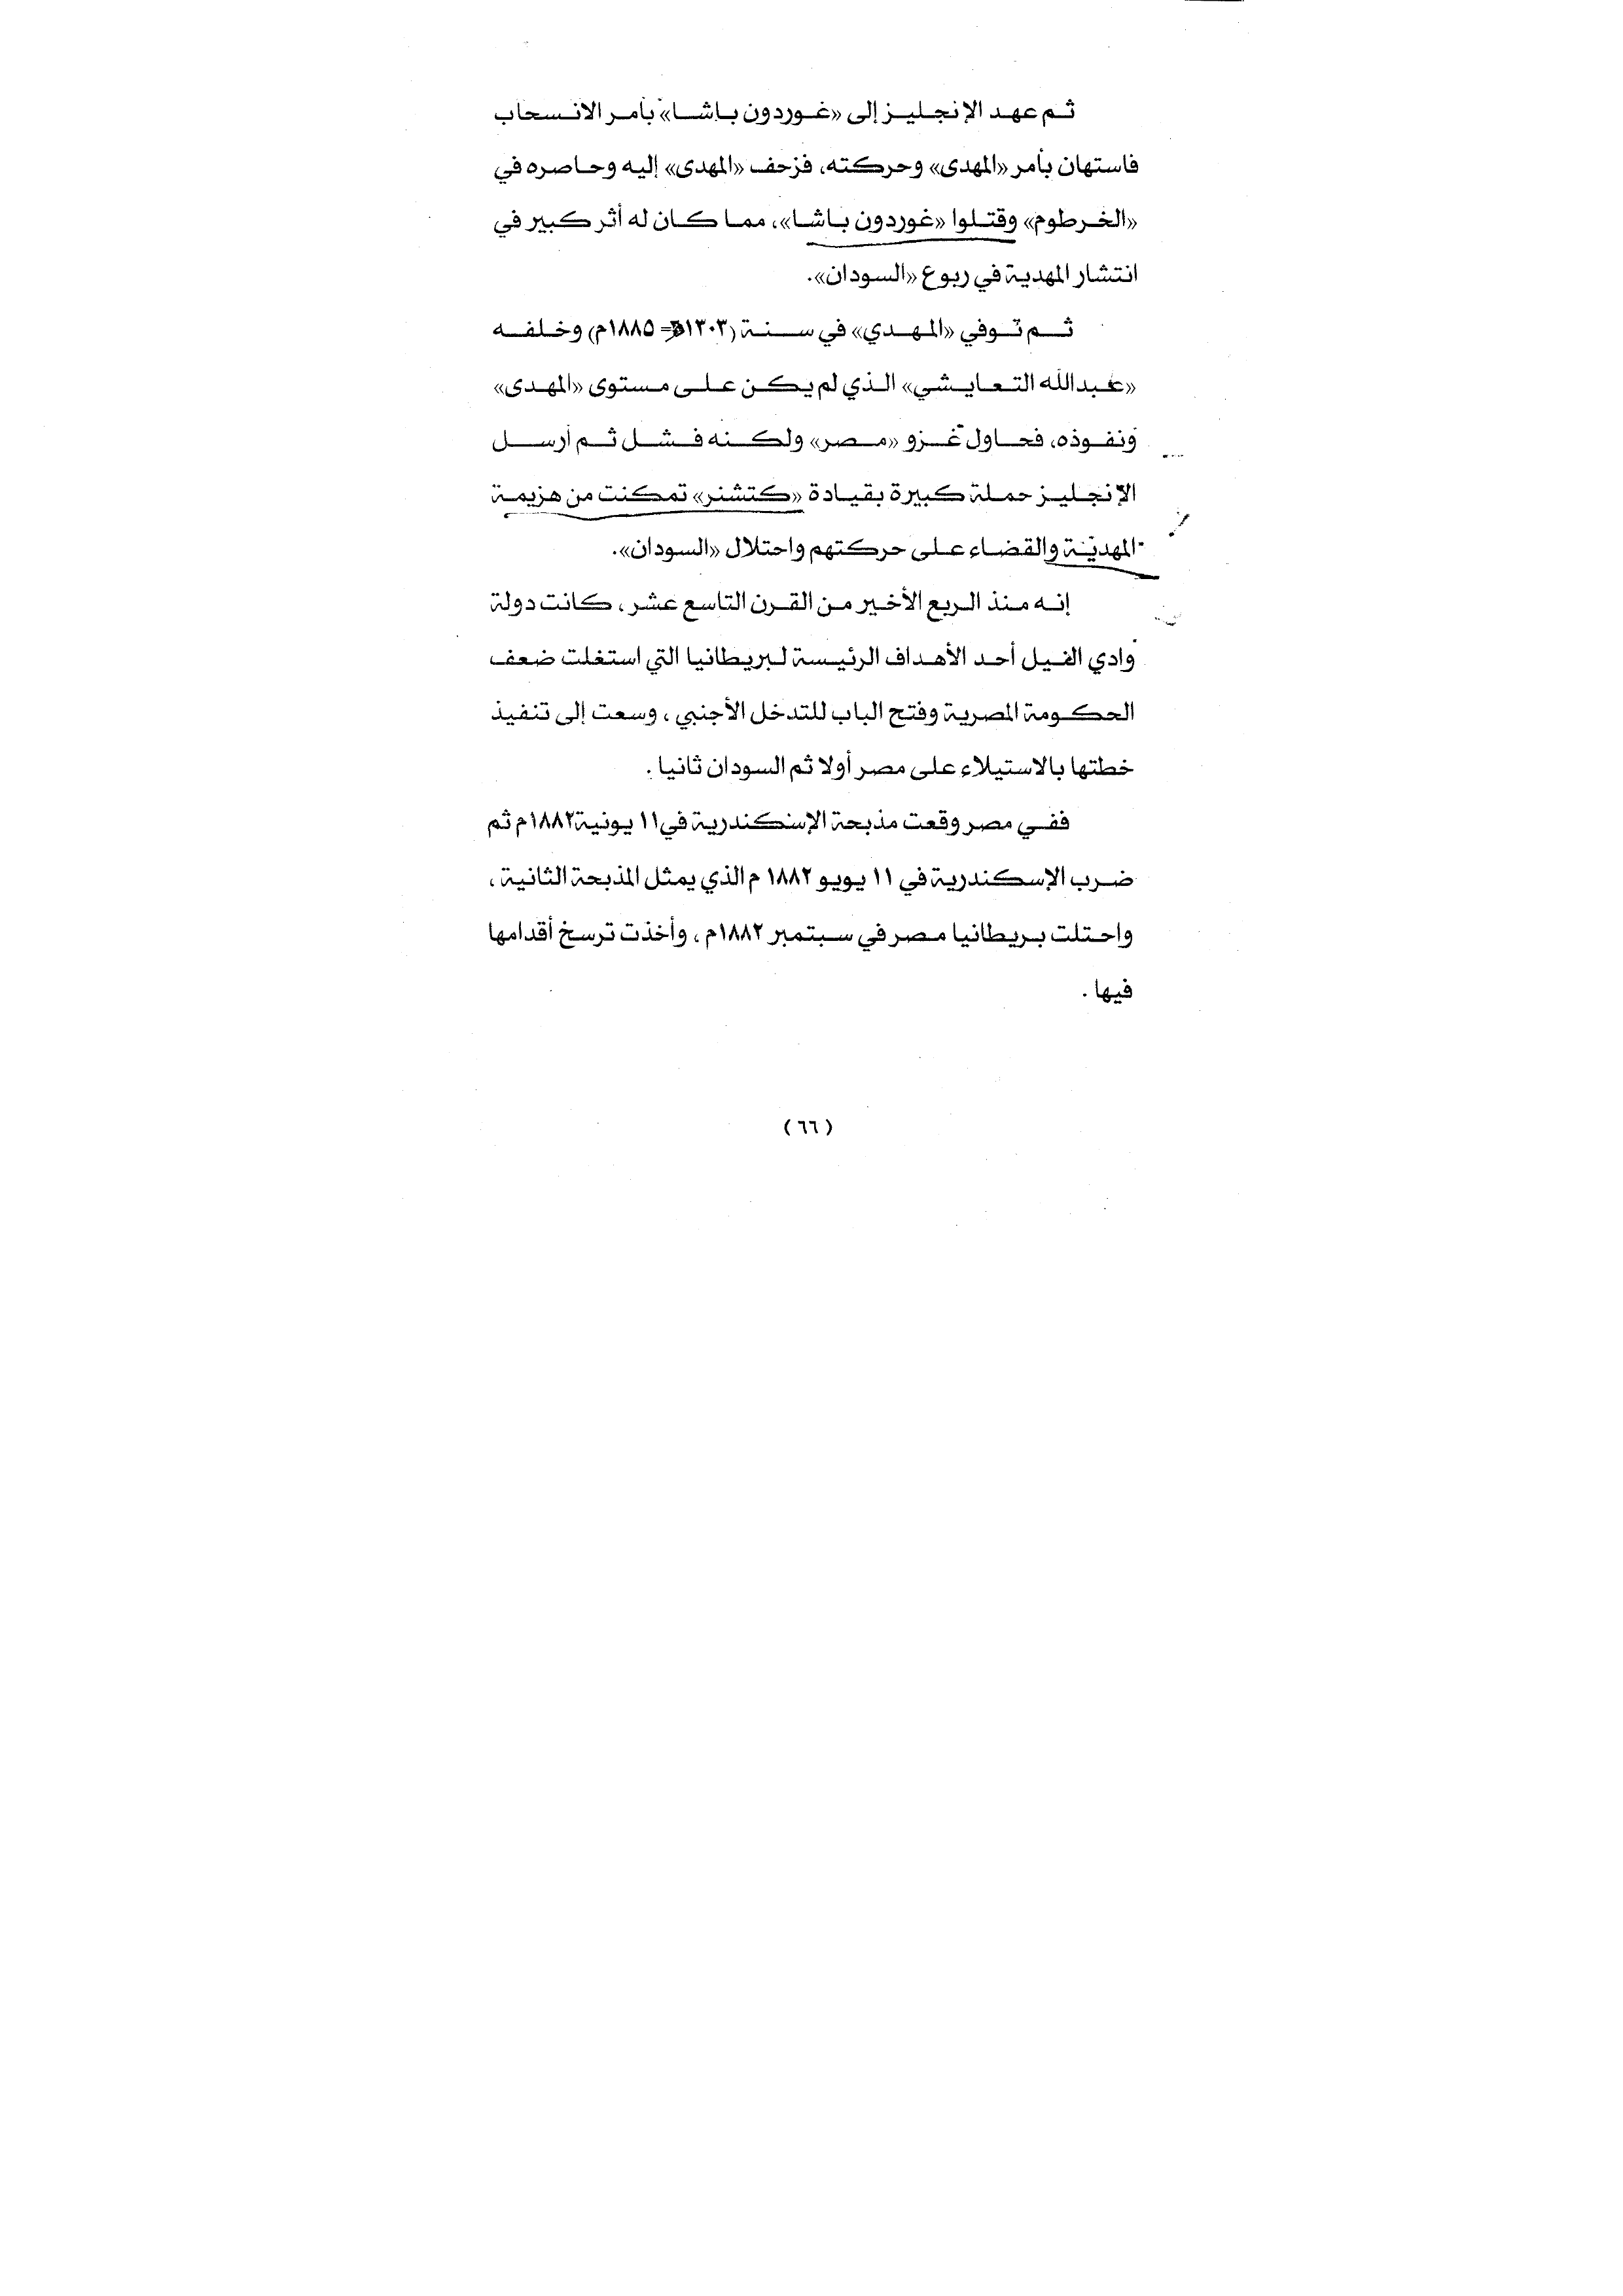 ثم عهد الإنجليز إلى «غوردون باشا» بأمر الانسحاب
فاستهان بأمر «المهدى» وحركته، فزحف «المهدى» إليه وحاصره في
«الخرطوم» وقتلوا «غوردون باشا»، مما كان له أثر كبير في
انتشار المهدية في ربوع «السودان».
ثم توفي «المهدي» في سنة (١٣٠٣هـ= ١٨٨٥م) وخلفه
«عبدالله التعايشي» الذي لم يكن على مستوى «المهدى»
ونفوذه، فحاول غزو «مصر» ولكنه فشل ثم أرسل
الإنجليز حملة كبيرة بقيادة «كتشنر» تمكنت من هزيمة
المهديّة والقضاء على حركتهم واحتلال «السودان».
إنه منذ الربع الأخير من القرن التاسع عشر ، كانت دولة
وادي الفيل أحد الأهداف الرئيسة لبريطانيا التي استغلت ضعف
الحكومة المصرية وفتح الباب للتدخل الأجنبي ، وسعت إلى تنفيذ
خطتها بالاستيلاء على مصر أولا ثم السودان ثانيا .
ففي مصر وقعت مذبحة الإسكندرية في١١ يونية١٨٨٢م ثم
ضرب الإسكندرية في ١١ يويو ١٨٨٢ م الذي يمثل المذبحة الثانية ،
واحتلت بريطانيا مصر في سبتمبر ١٨٨٢م ، وأخذت ترسخ أقدامها
فيها .
( ٦٦ )